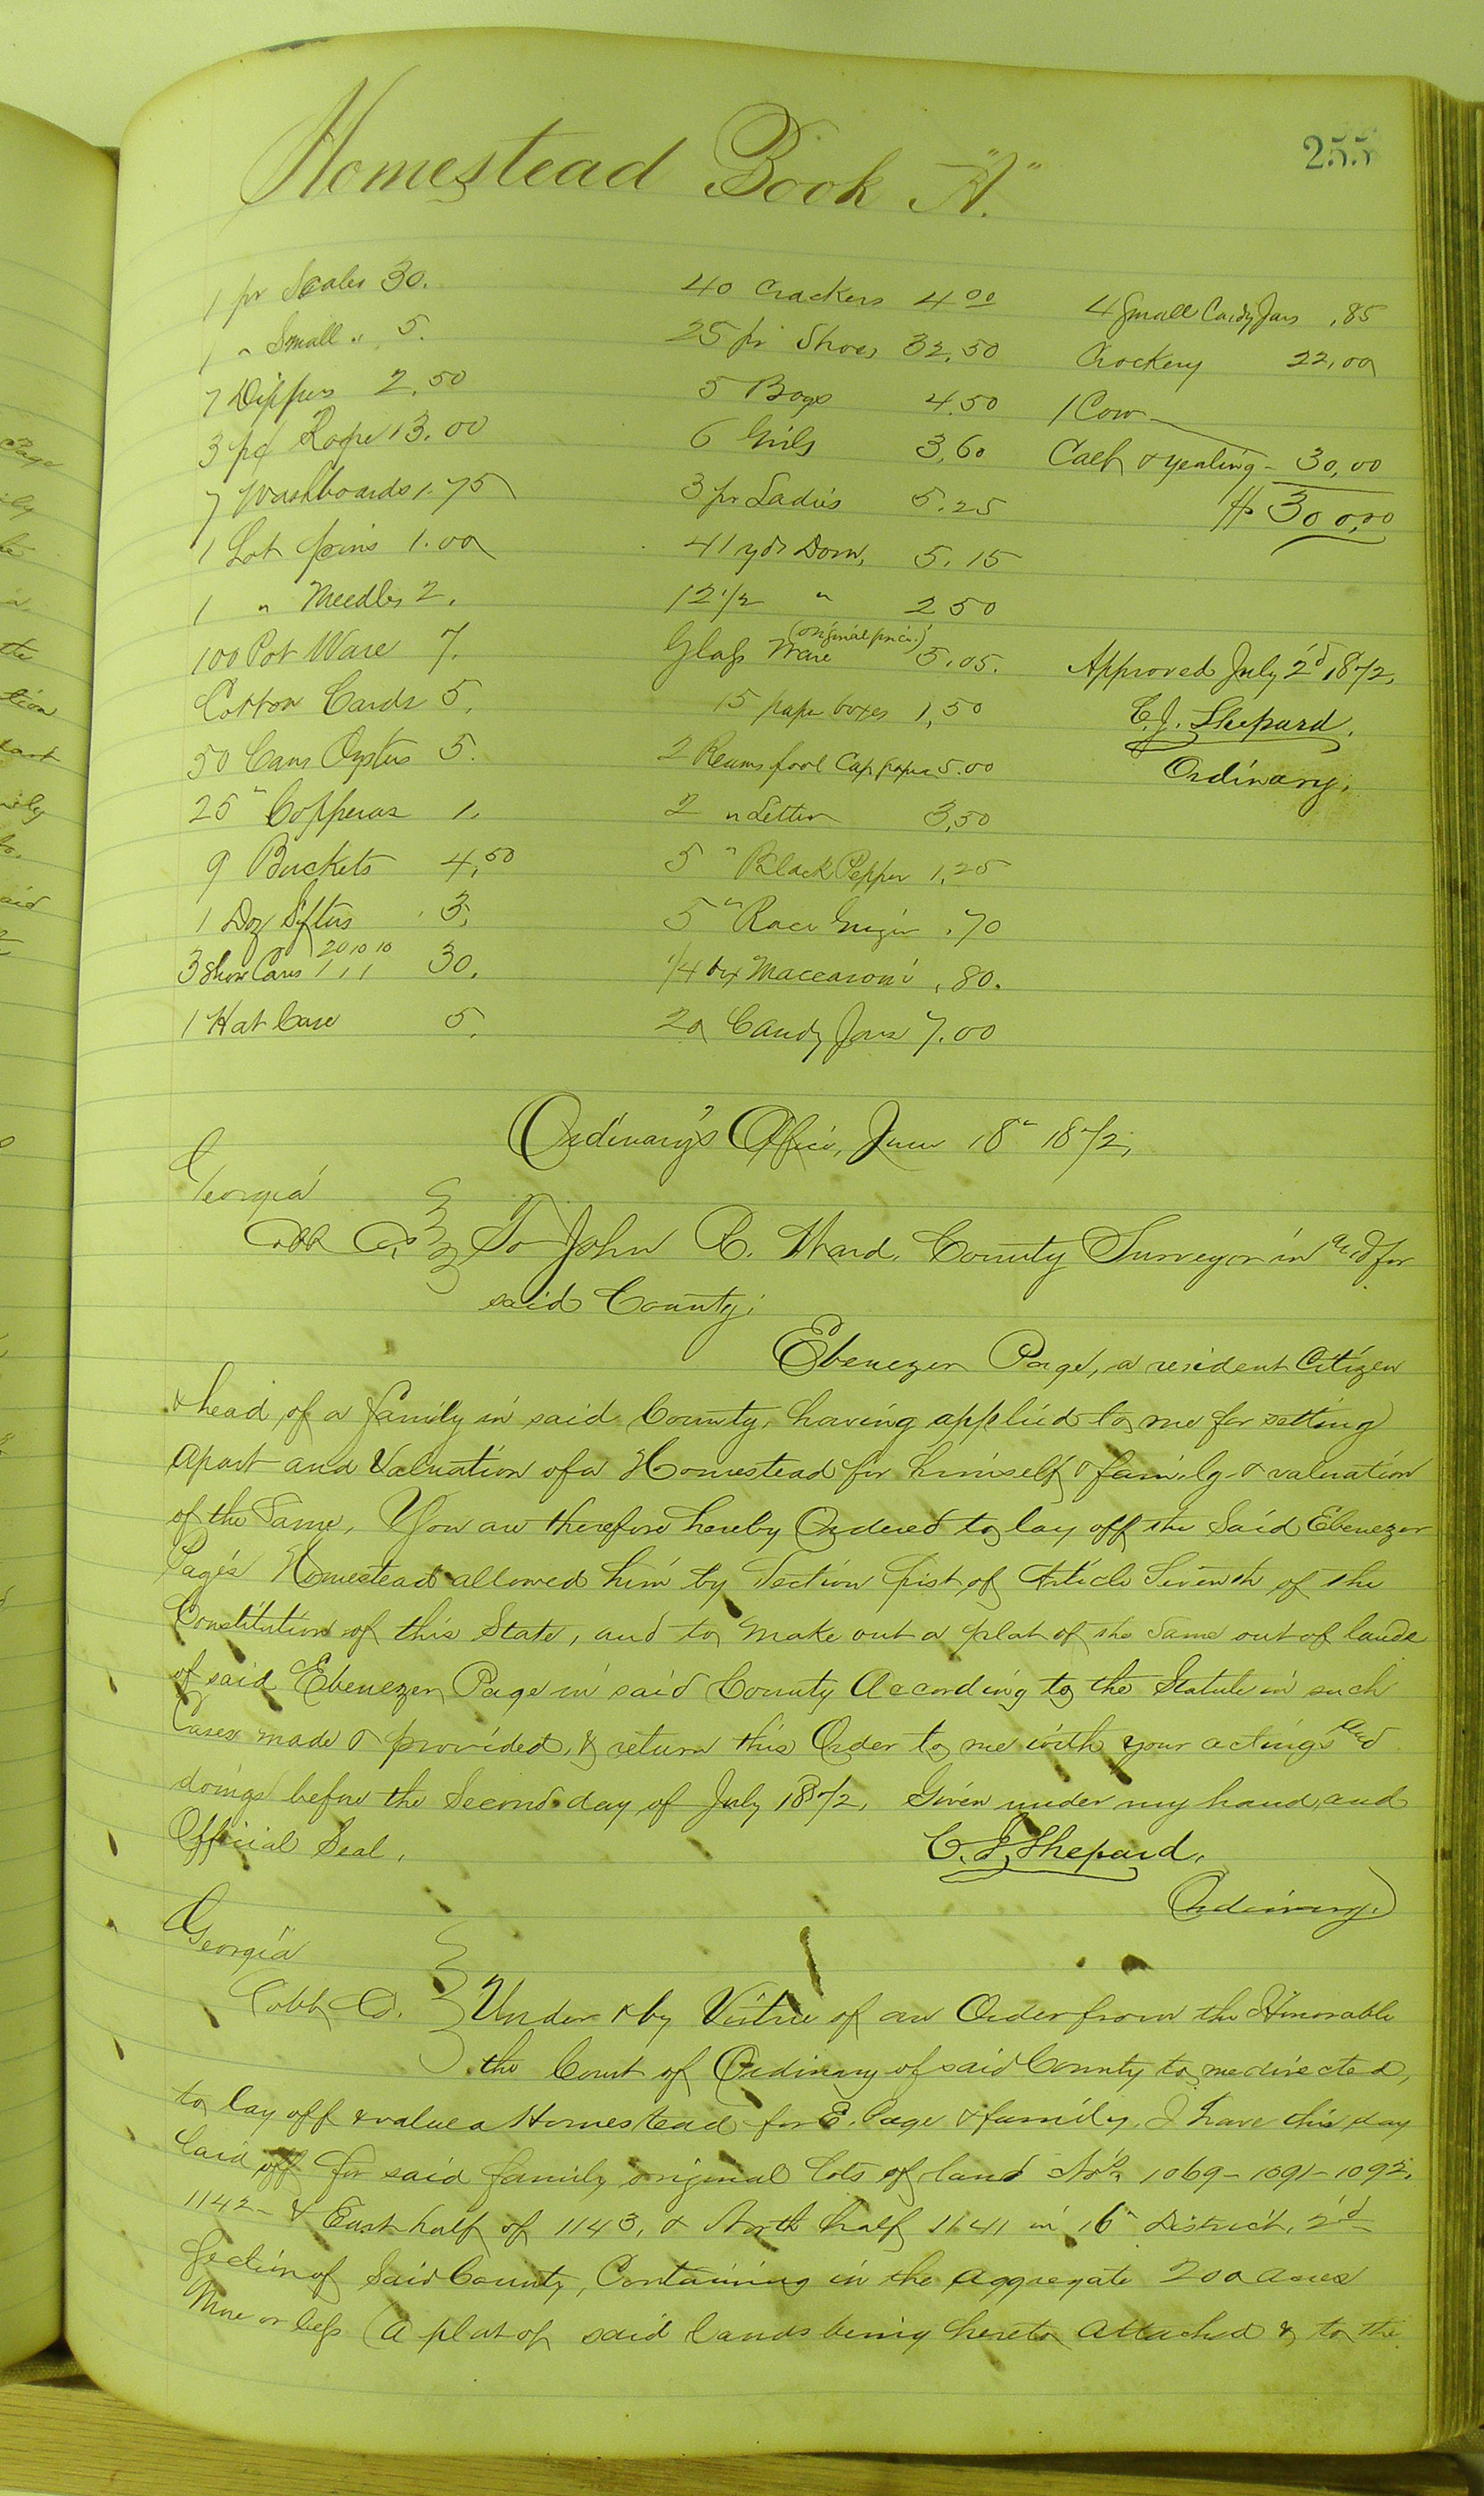 255
Homestead Book "A."
1 pr Scales 30.
1 " Small " 5.
7 Dippers 2.50
3 pcs Rope 13.00
7 Washboards 1.75
1 Lot pins 1.00
1 " Needles 2.
100 Pot Ware 7.
Cotton Cards 5.
50 Cans Oysters 5.
25 " Copperas 1.
9 Buckets 4.50
1 Doz Sifters 3.
20 10 10
3 Show Cases 1 1 1 30.
1 Hat Case 5.
40 Crackers 4.00
25 pr Shoes 32.50
5 Boys 4.50
6 Girls 3.60
3 pr Ladies 5.25
41 yds Dom. 5.15
12 1/2 " 2 50
(original price.)
Glass Ware 5.05.
15 paper boxes 1.50
2 Reams fool Cap paper 5.00
2 " Letter 3.50
5 " Black Pepper 1.25
5 " Race Gingir .70
1/4 bx Maccaroni .80.
20 Candy Jars 7.00
4 Small Candy Jars .85
Crockery 22.00
1 Cow
Calf & yealing - 30.00
$ 300.00
Approved July 2d 1872,
C. J. Shepard.
Ordinary.
Ordinary's Office, June 18" 1872,
Georgia
Cobb Co. To John C. Ward, County Surveyor in and for
said County;
Ebenezer Page, a resident Citizen
& head of a family in said County, having applied to me for setting
apart and Valuation of a Homestead for himself & family & valuation
of the Same, You are therefore hereby Ordered to lay off the Said Ebenezer
Page's Homestead allowed him by Section first of Article Seventh of the
Constitution of this State, and to make out a plat of the Same out of lands
of said Ebenezer Page in said County According to the Statute in such
Cases made & provided, & return this Order to me with your actings and
doings before the Second day of July 1872. Given under my hand, and
Official Seal.
C. J. Shepard,
Ordinary.
Georgia
Cobb Co. Under & by Virtue of an Order from the Honorable
the Court of Ordinary of said County to me directed,
to lay off & value a Homestead for E. Page & family, I have this day
Laid off for said family original lots of land Nos. 1069 - 1091 - 1092,
1142 - & East half of 1143, & North half 1141 in 16" District, 2d
Section of Said County, Containing in the aggregate 200 acres
More or less (A plat of said Lands being hereto attached & to the